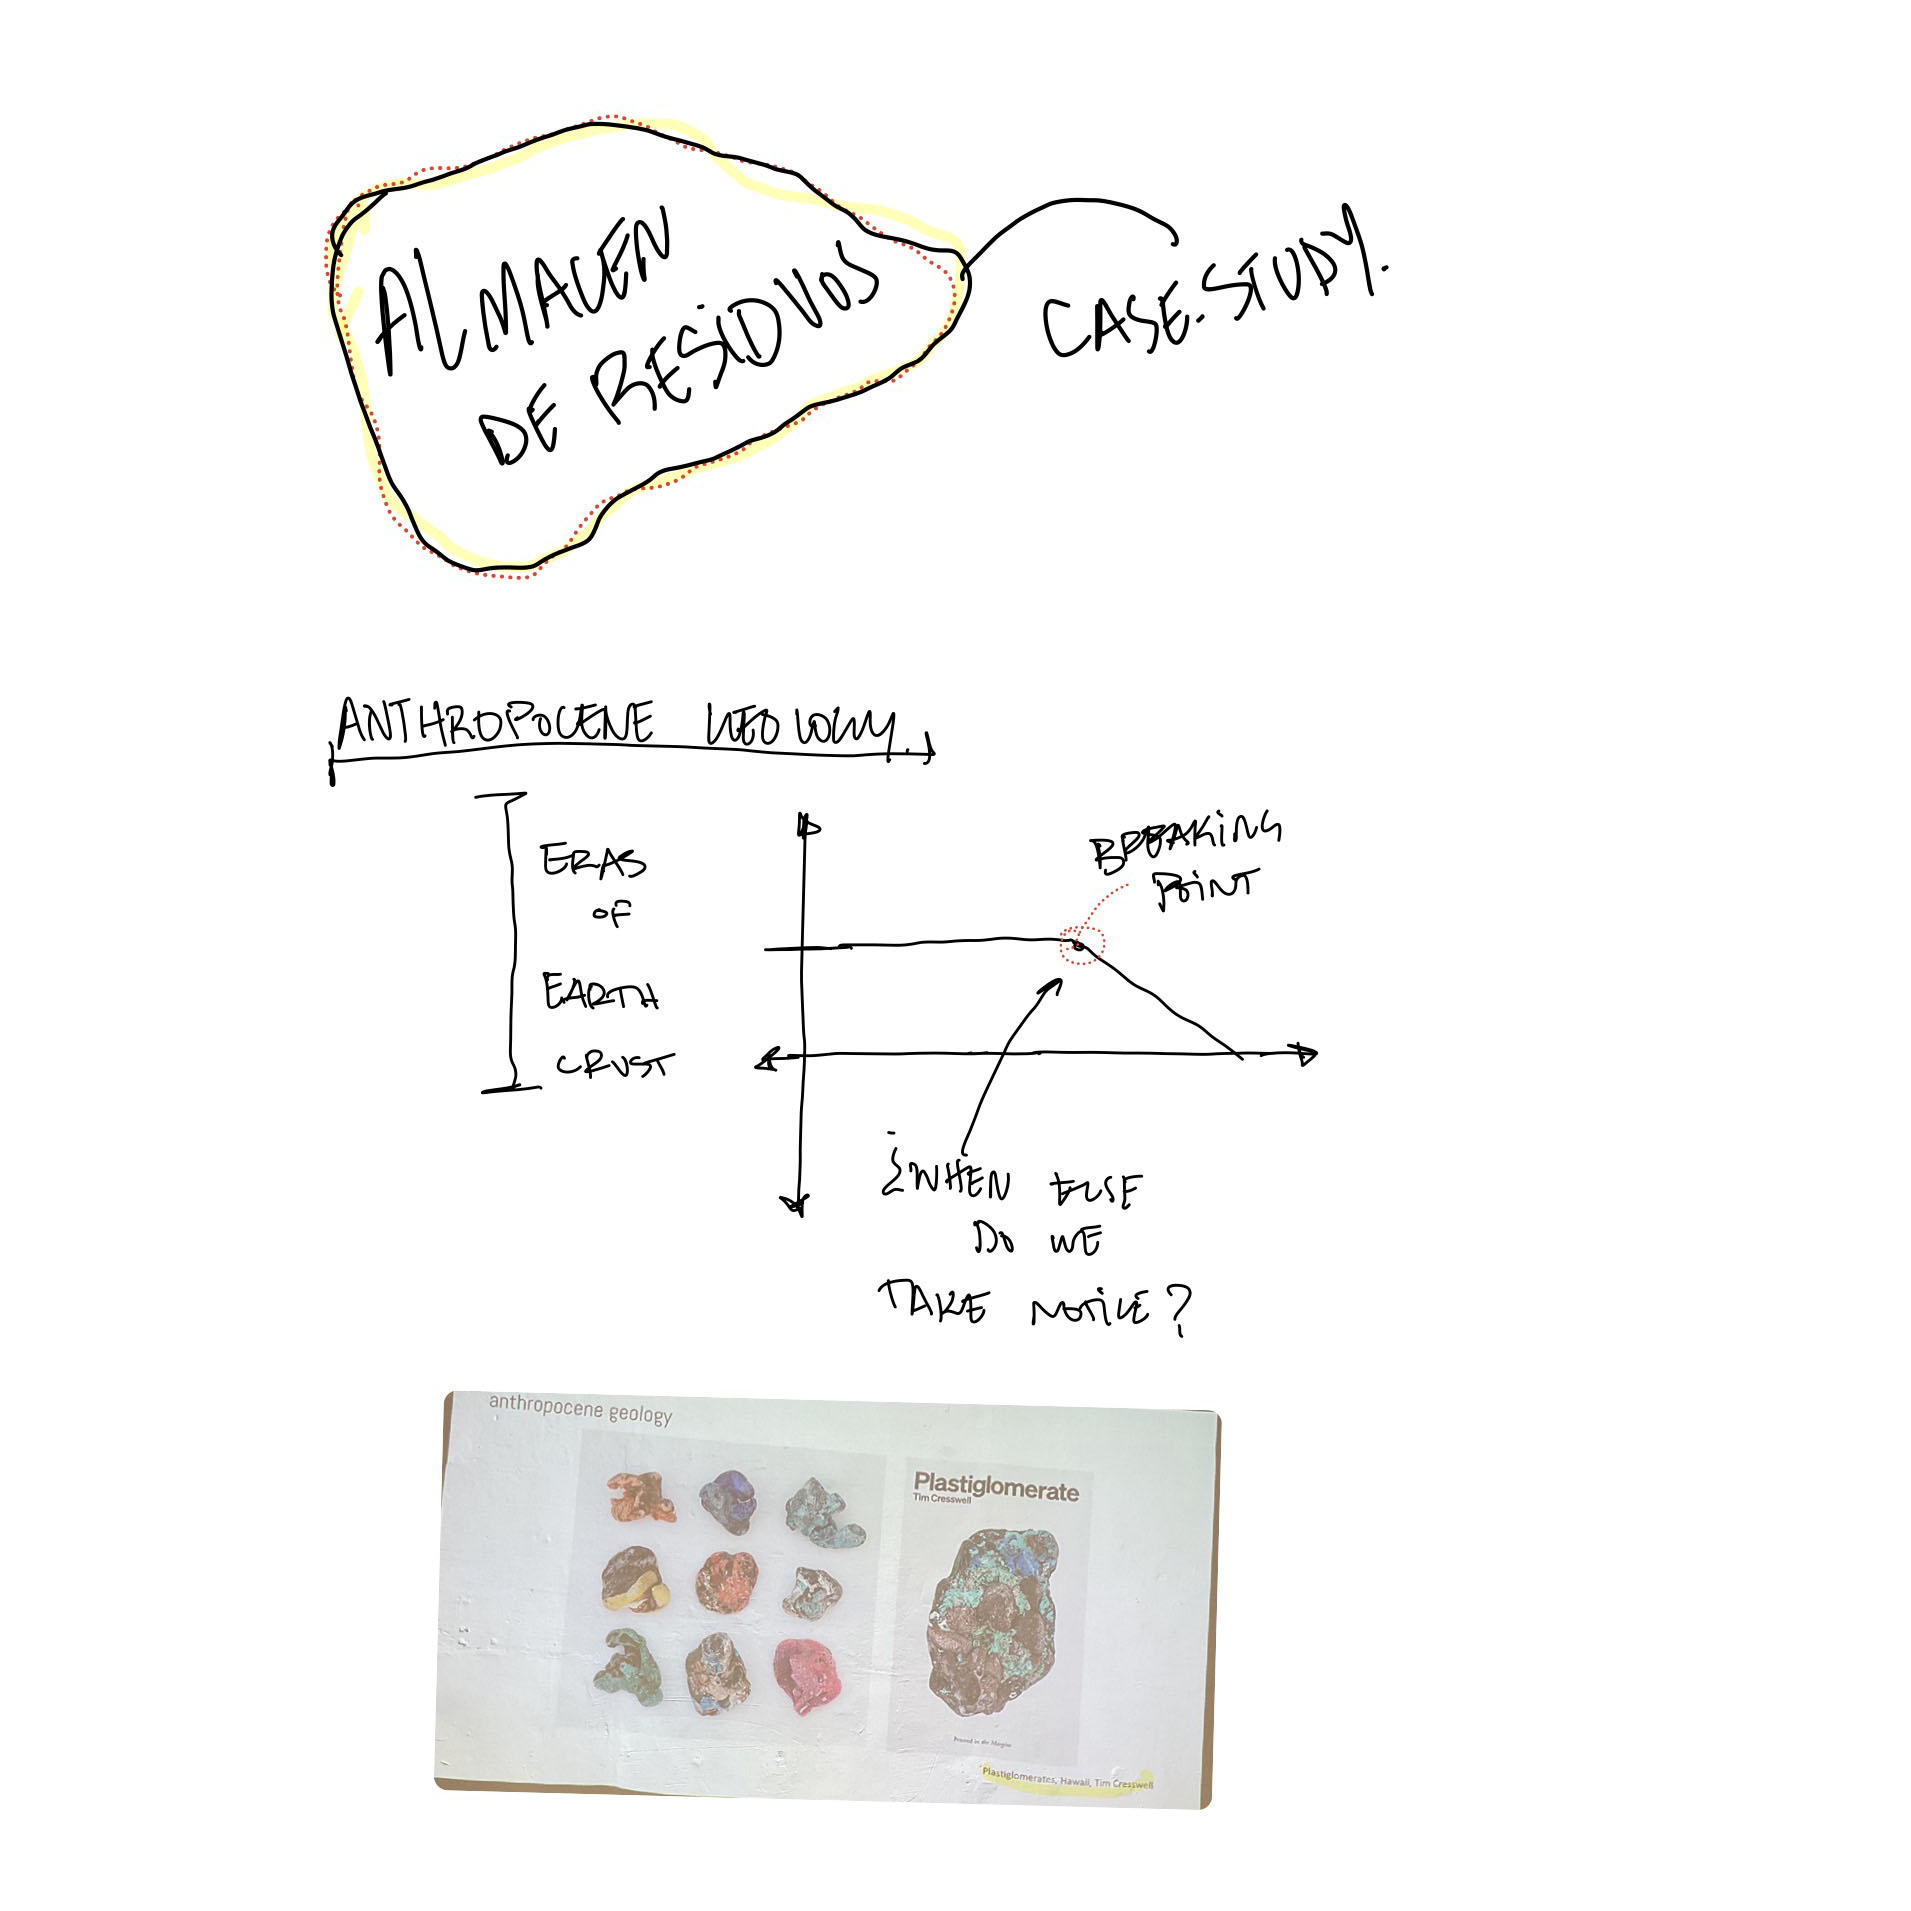 ALMACEN
DE RESIDUOS
CASE-STUDY.
ANTHROPOCENE GEOLOGY.
ERAS
OF
EARTH
CRUST
BREAKING
POINT
¿WHEN ELSE
DO WE
TAKE NOTICE?
anthropocene geology
Plastiglomerate
Tim Cresswell
Printed in the Margins
Plastiglomerates, Hawaii, Tim Cresswell